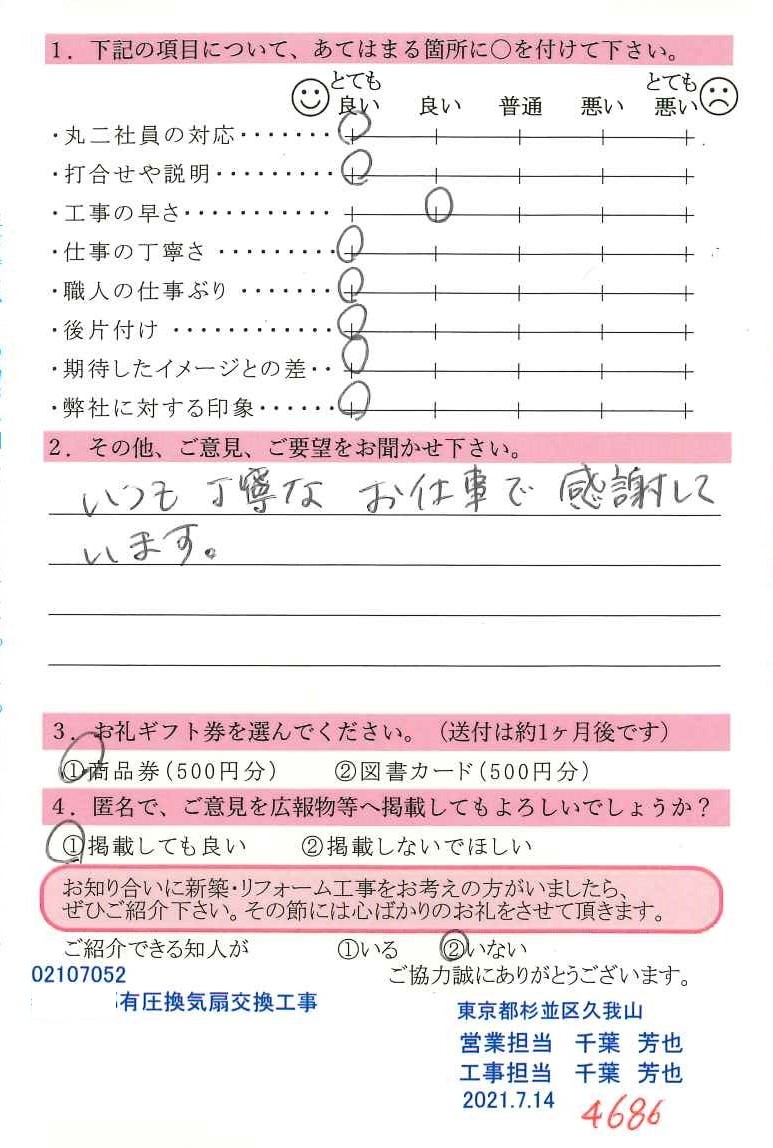 1．下記の項目について、あてはまる箇所に○を付けて下さい。
とても良い 良い 普通 悪い とても悪い
・丸二社員の対応・・・・・・・
・打合せや説明・・・・・・・・・
・工事の早さ・・・・・・・・・・・
・仕事の丁寧さ ・・・・・・・・・
・職人の仕事ぶり ・・・・・・・
・後片付け ・・・・・・・・・・・・
・期待したイメージとの差・・
・弊社に対する印象・・・・・・
2．その他、ご意見、ご要望をお聞かせ下さい。
いつも丁寧なお仕事で感謝して
います。
3．お礼ギフト券を選んでください。（送付は約1ヶ月後です）
①商品券（500円分） ②図書カード（500円分）
4．匿名で、ご意見を広報物等へ掲載してもよろしいでしょうか？
①掲載しても良い ②掲載しないでほしい
お知り合いに新築・リフォーム工事をお考えの方がいましたら、
ぜひご紹介下さい。その節には心ばかりのお礼をさせて頂きます。
ご紹介できる知人が ①いる ②いない
ご協力誠にありがとうございます。
02107052
有圧換気扇交換工事
東京都杉並区久我山
営業担当 千葉 芳也
工事担当 千葉 芳也
2021.7.14
4686